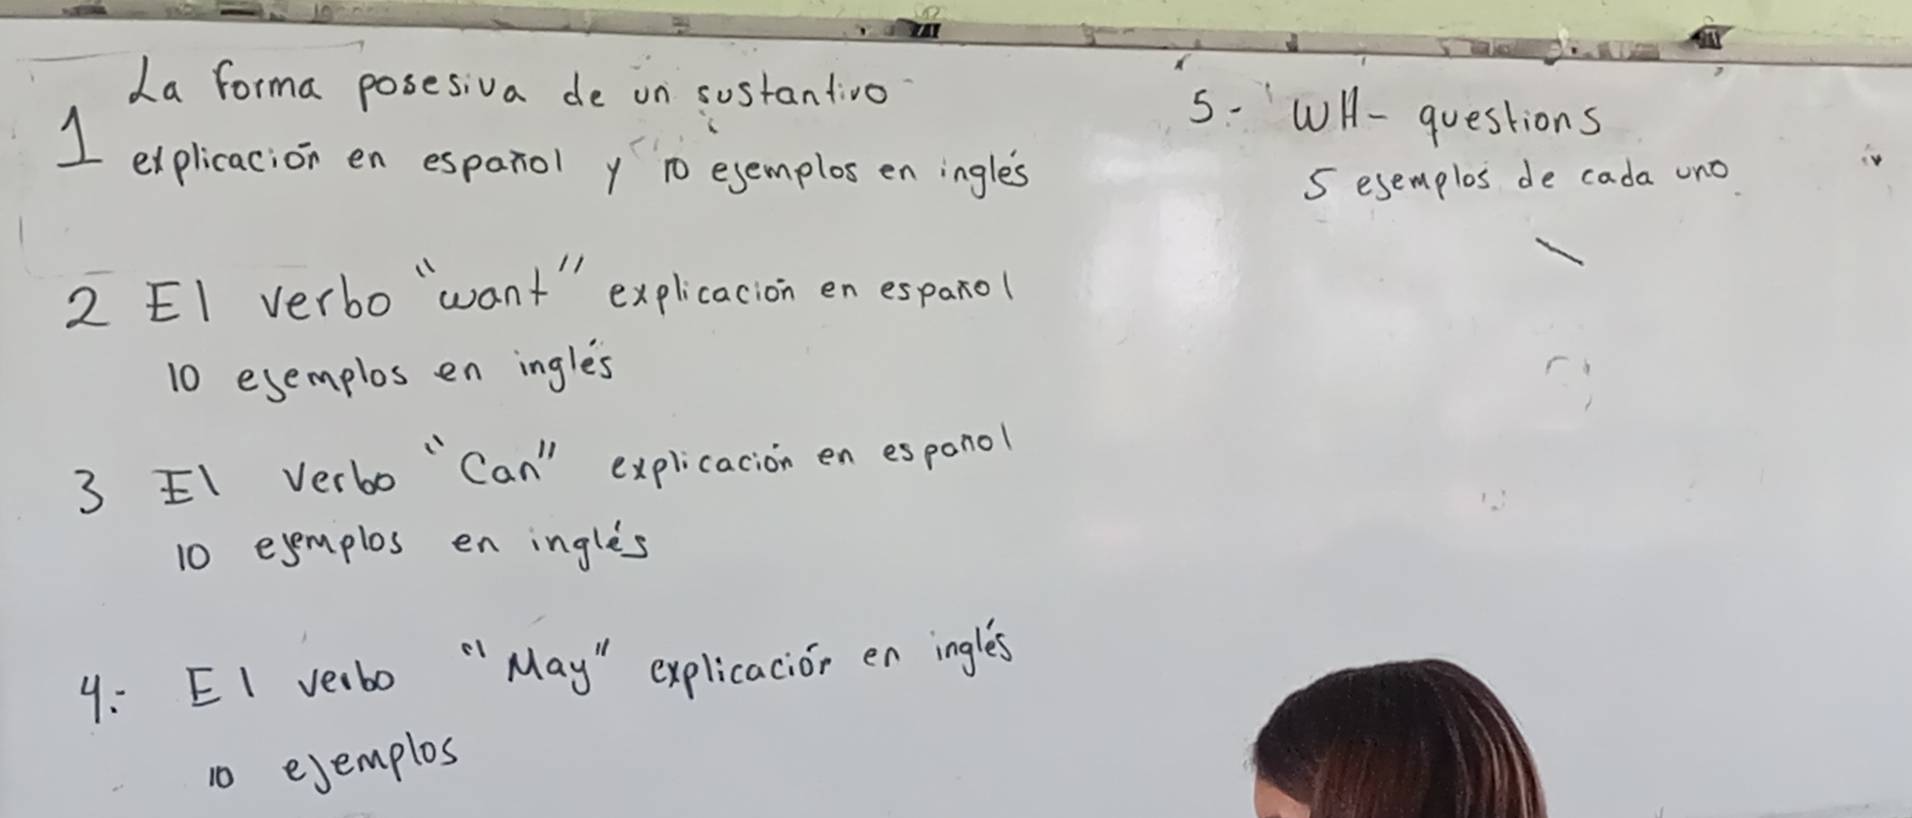 La forma posesiva de un sustantivo
1 explicación en español y 10 ejemplos en inglés
2 El verbo "want" explicación en español
10 ejemplos en inglés
3 El verbo "Can" explicación en español
10 ejemplos en inglés
4.- El verbo "May" explicación en inglés
10 ejemplos
5.- WH- questions
5 ejemplos de cada uno.